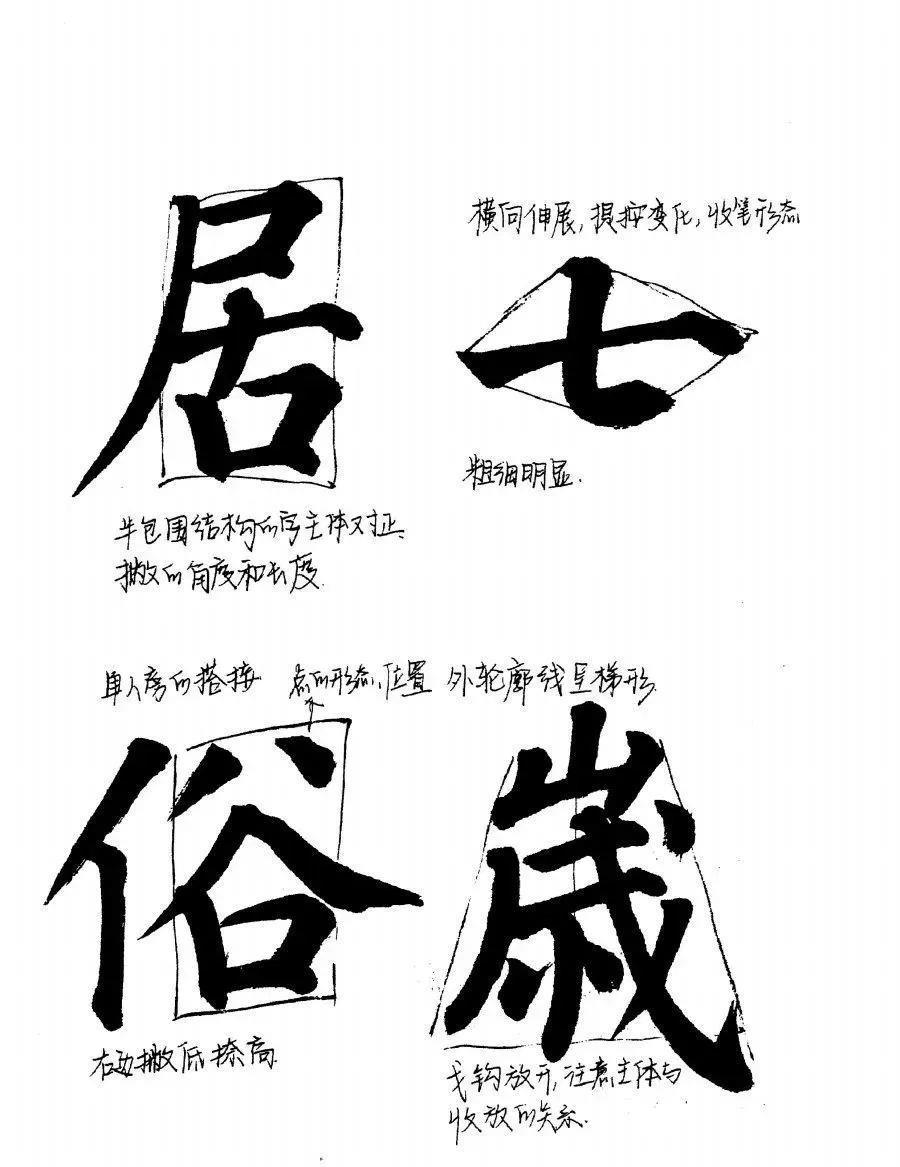 居
七
横向伸展,提按变化,收笔形态
粗细明显.
半包围结构的字主体对正
撇的角度和长度.
单人旁的搭接
点的形态、位置
外轮廓线呈梯形.
俗
歲
右边撇低捺高
戈钩放开,注意主体与
收放的关系.